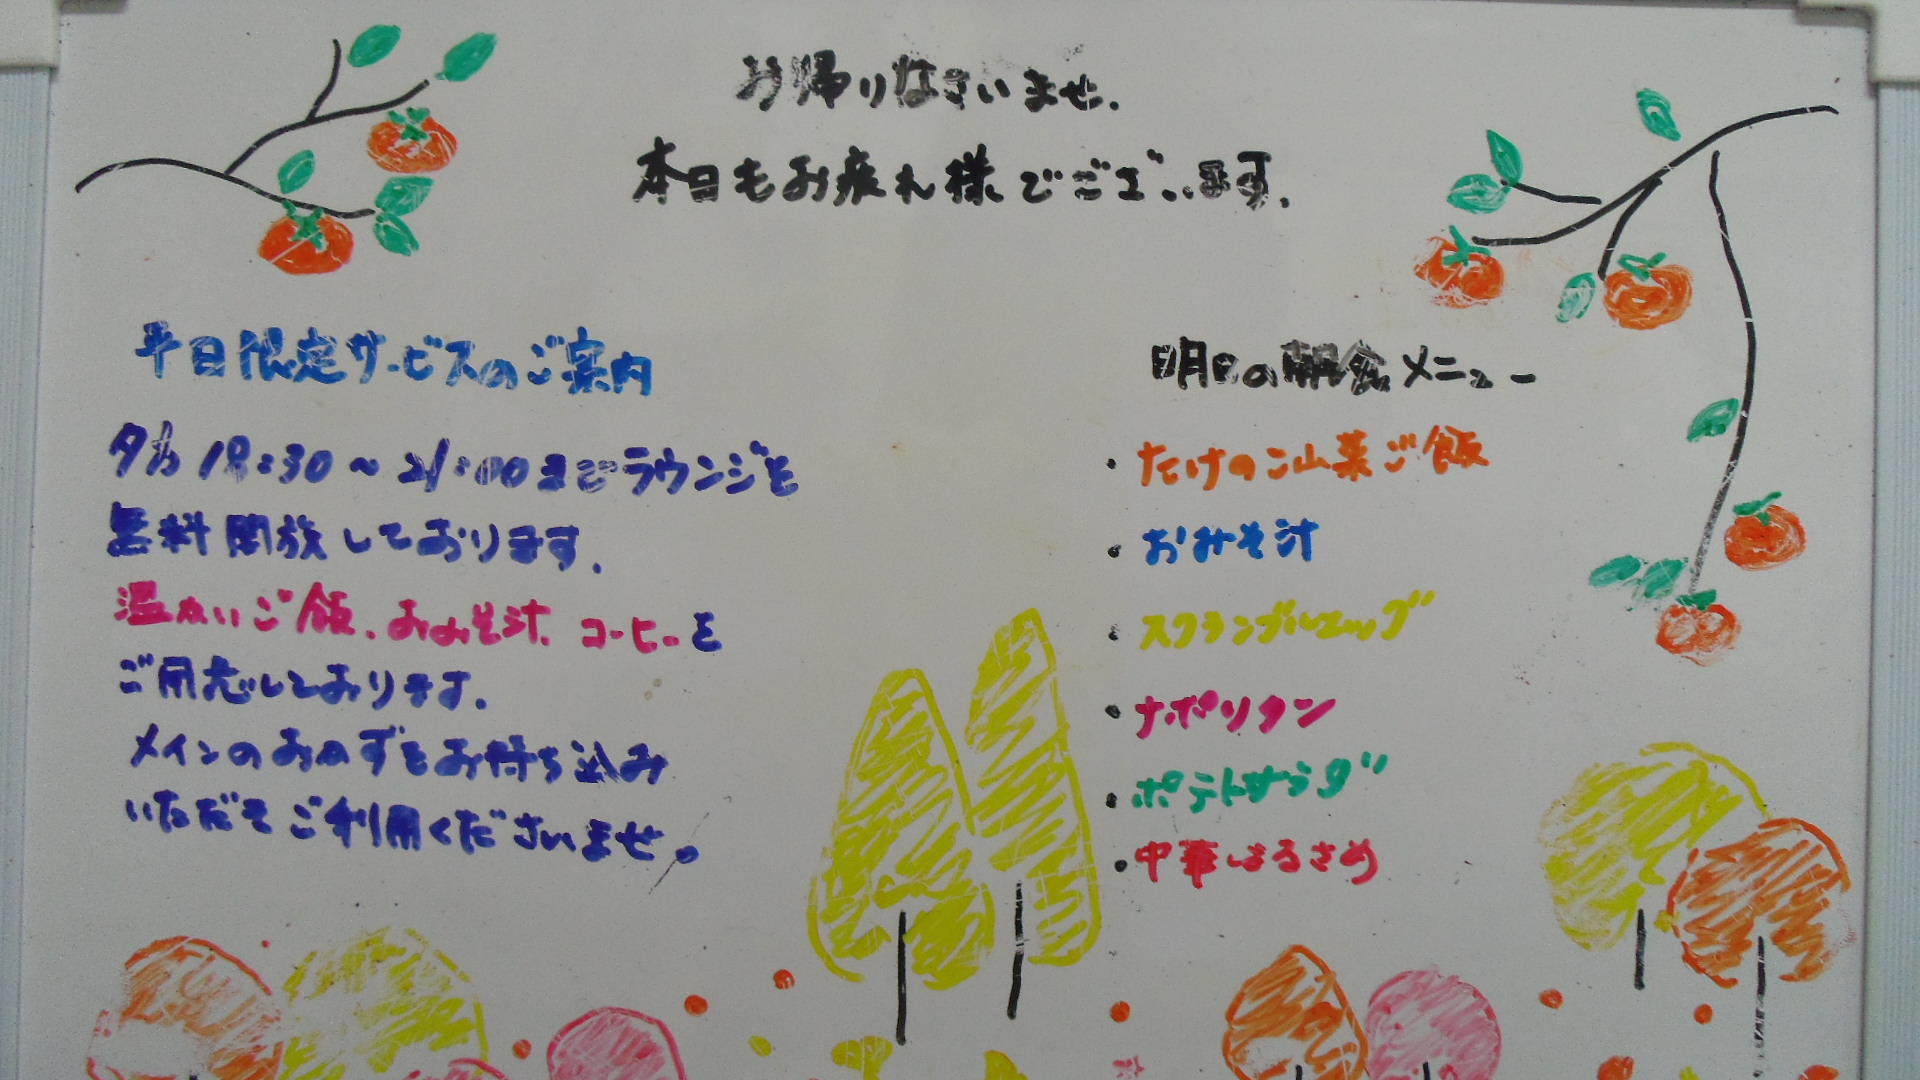 お帰りなさいませ.
本日もお疲れ様でございます.
平日限定サービスのご案内
夕方 18:30～21:00までラウンジを
無料開放しております.
温かいご飯、おみそ汁、コーヒーを
ご用意しております.
メインのおかずをお持ち込み
いただきご利用くださいませ。
明日の朝食メニュー
・たけのこ山菜ご飯
・おみそ汁
・スクランブルエッグ
・ナポリタン
・ポテトサラダ
・中華はるさめ